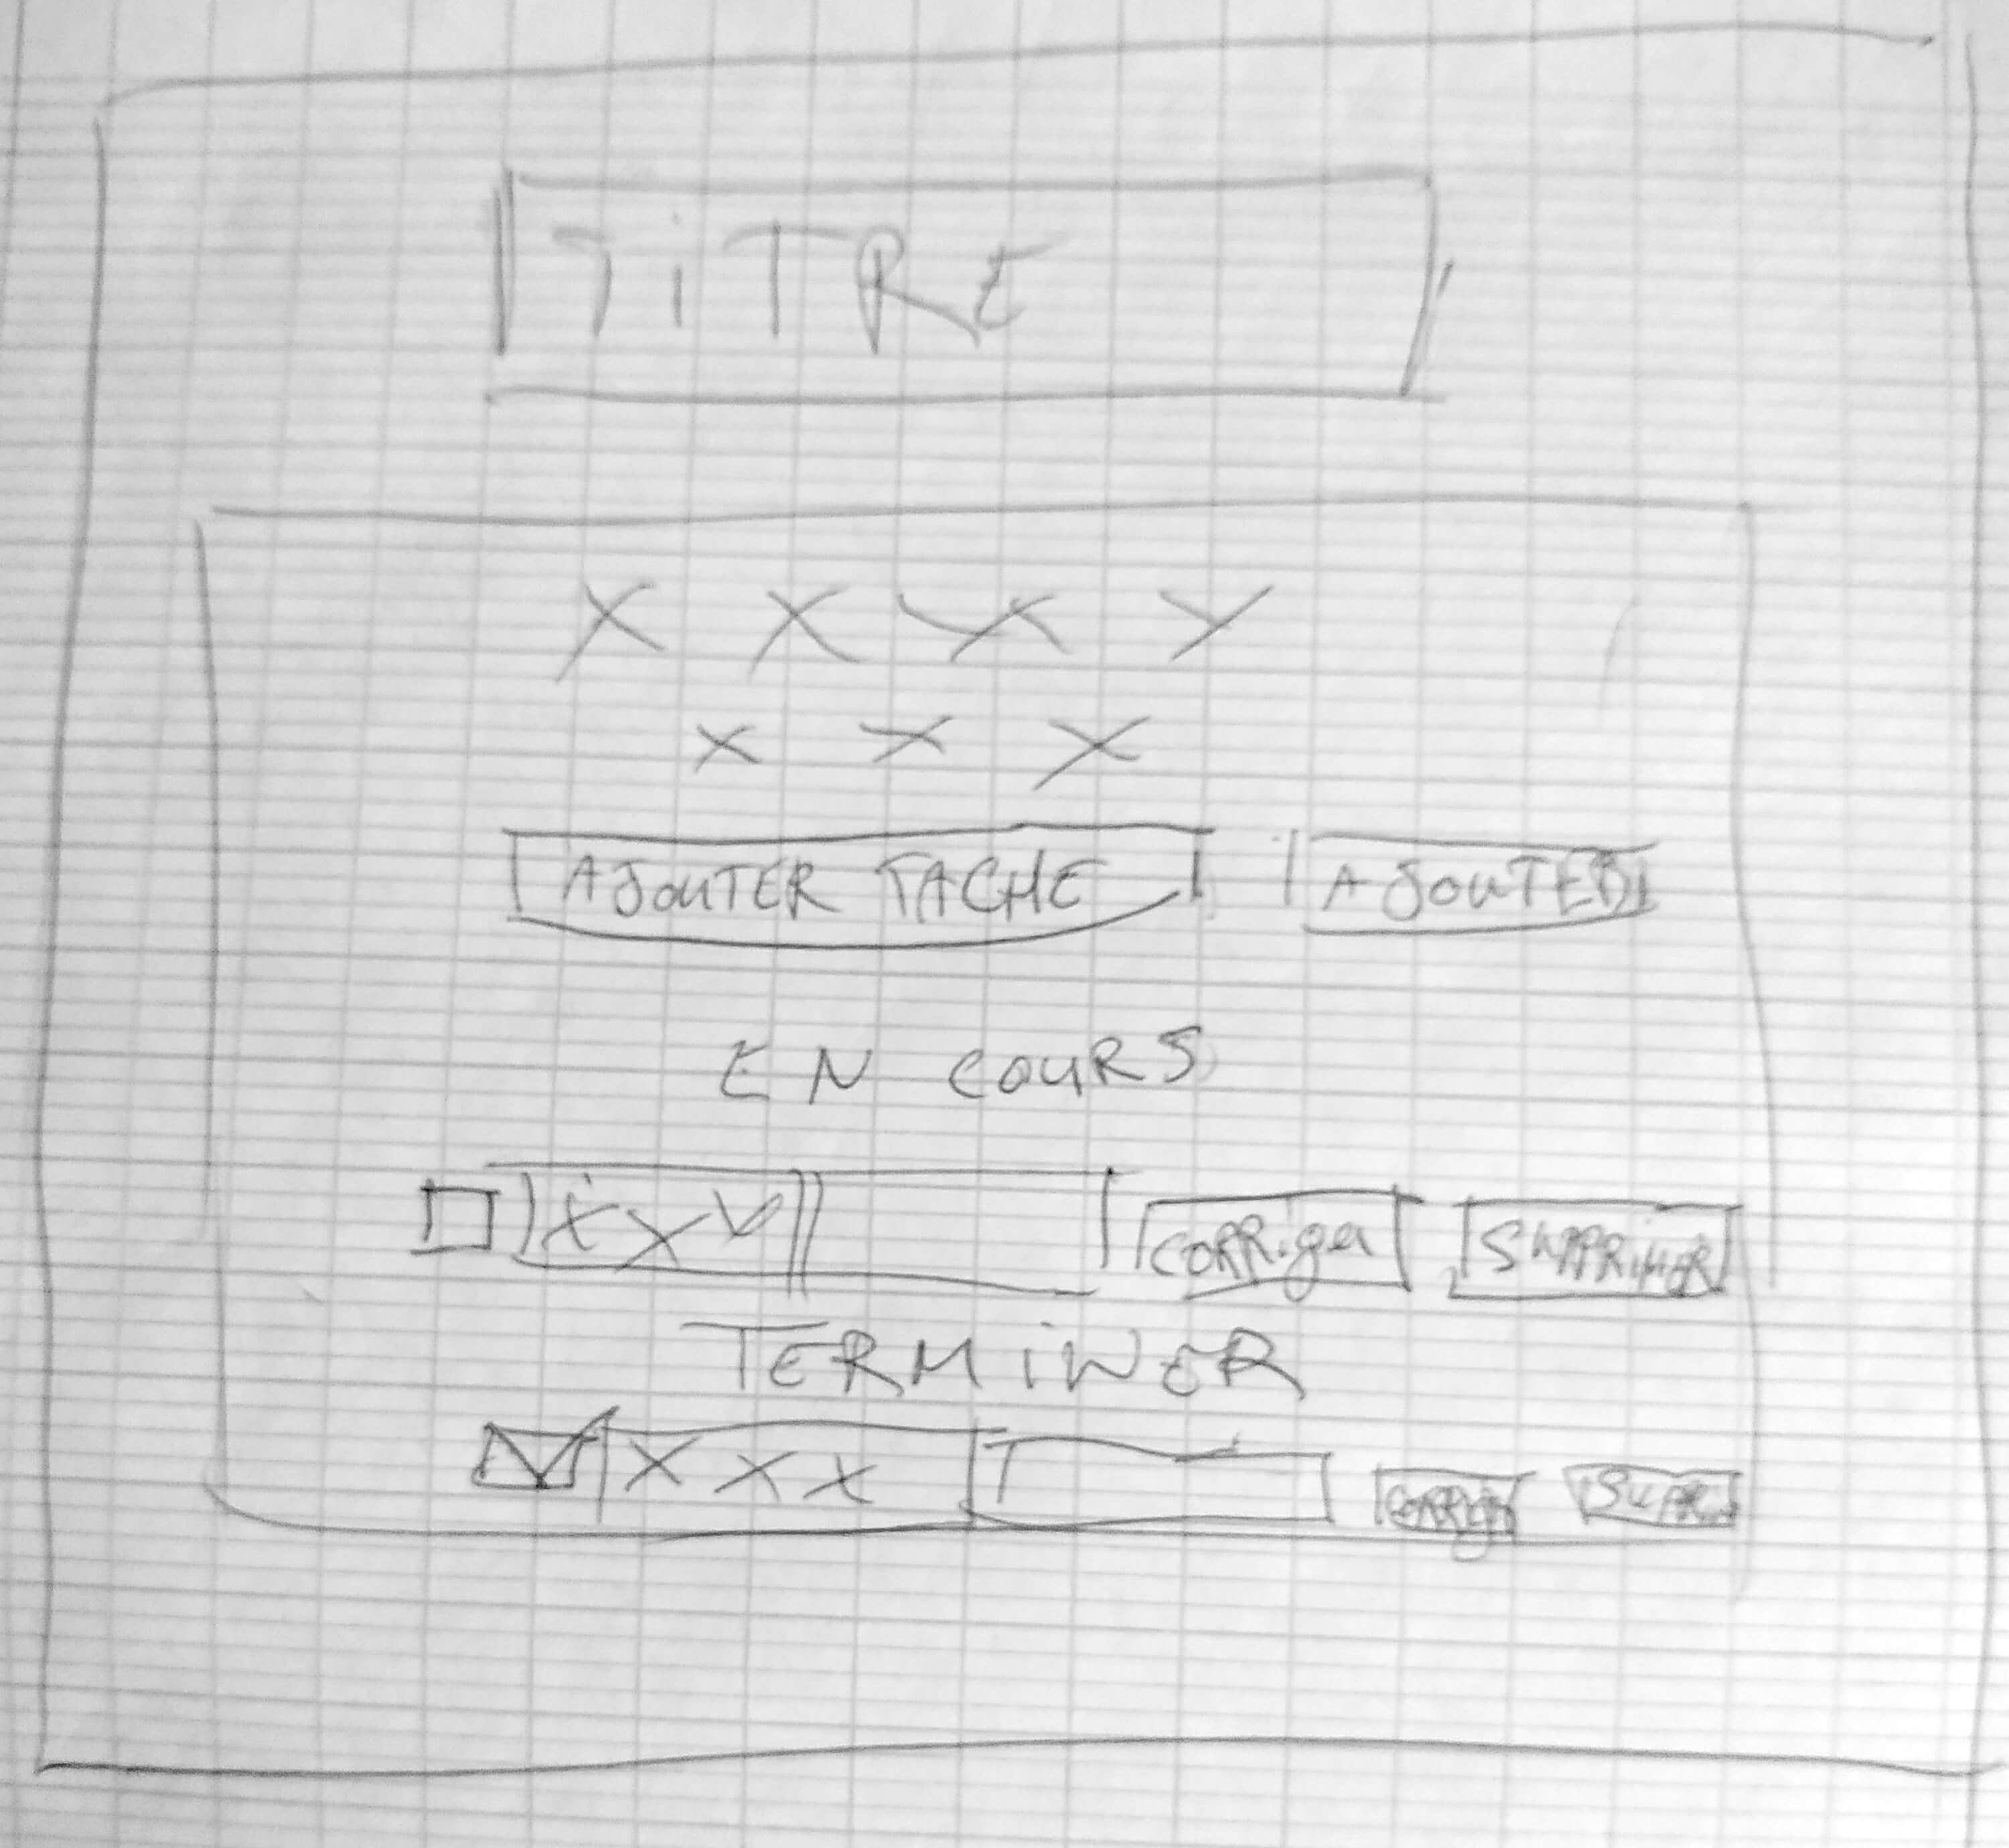 TITRE
X X X X Y
X X X
AJOUTER TACHE AJOUTER
EN COURS
X X X CORRiger SUPPRIMER
TERMINER
X X X CORRiger SUPPR